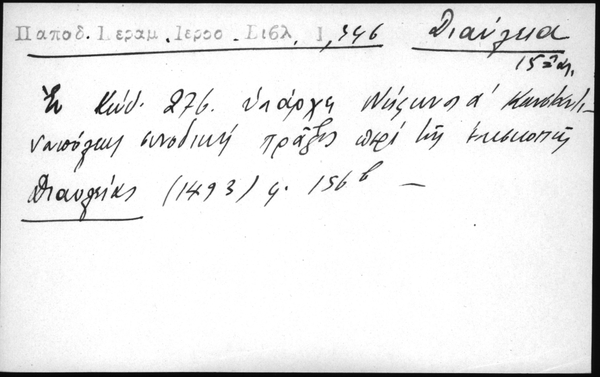 Παπαδ. Κεραμ. Ιεροσ. Βιβλ. 1,346 Διαύλεια
15ος αι.
Ἐν Κώδ. 276. ὑπάρχει Νήφωνος α' Κωνσταντι-
νουπόλεως συνοδική πρᾶξις περί τῆς ἐπισκοπῆς
Διαυλείας (1493) φ. 156β —